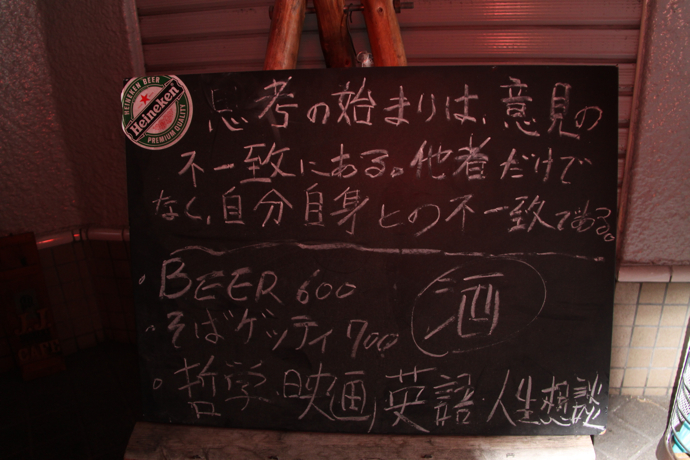 HEINEKEN BEER
Heineken
PREMIUM QUALITY
思考の始まりは、意見の
不一致にある。他者だけで
なく、自分自身との不一致である。
BEER 600
そばゲッティ 700
酒
哲学・映画・英語・人生想談